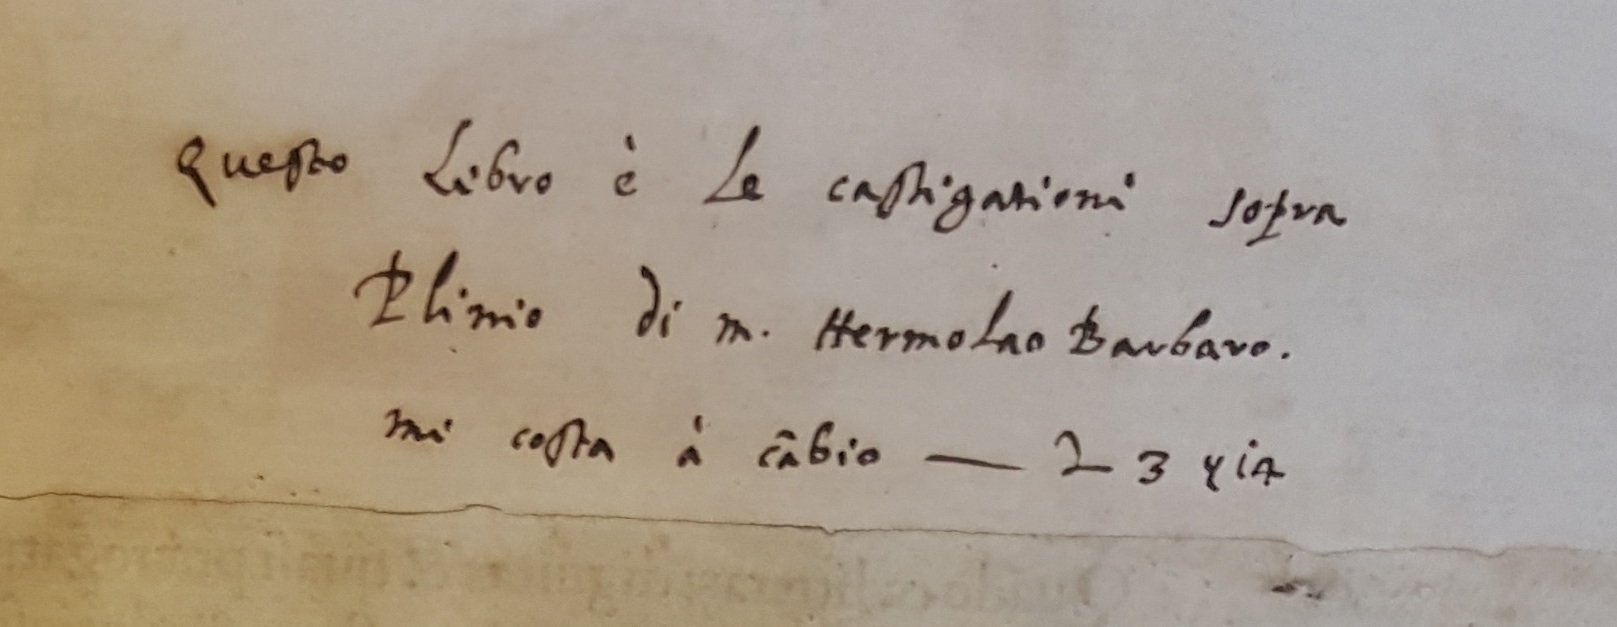 Questo Libro è Le castigationi sopra
Plinio di m. Hermolao Barbaro.
mi costa à cābio — L 3